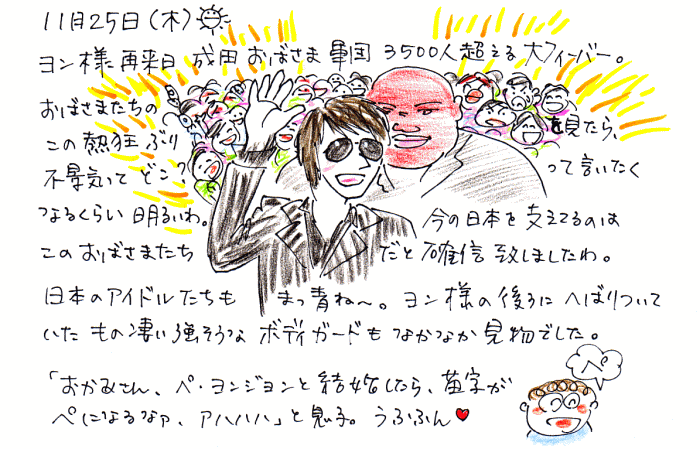 11月25日(木)
ヨン様再来日 成田 おばさま軍団 3500人超える大フィーバー。
おばさまたちの
この熱狂ぶり を見たら、
不景気って どこ? って言いたく
なるくらい 明るいわ。 今の日本を支えてるのは
このおばさまたち だと確信致しましたわ。
日本のアイドルたちも まっ青ね〜。ヨン様の後ろに へばりついて
いた もの凄い強そうな ボディガードも なかなか見物でした。
「おかみさん、ペ・ヨンジョンと結婚したら、苗字が
ペになるなァ、アハハハ」と息子。うふふん♥
ペ